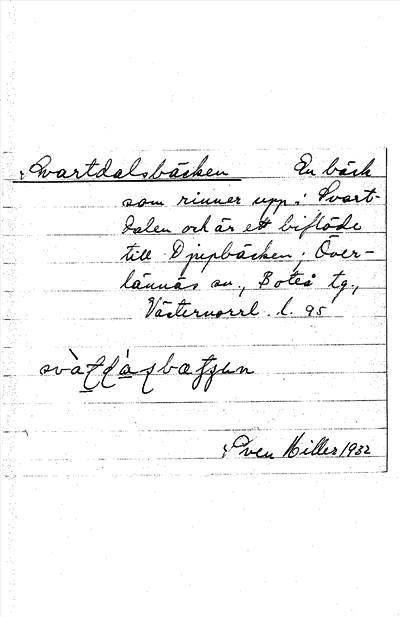 Svartdalsbäcken En bäck
som rinner upp i Svart-
dalen och är ett biflöde
till Djupbäcken; Över-
lännäs sn., Boteå tg.,
Västernorrl. l. 95
Sven Hiller 1932